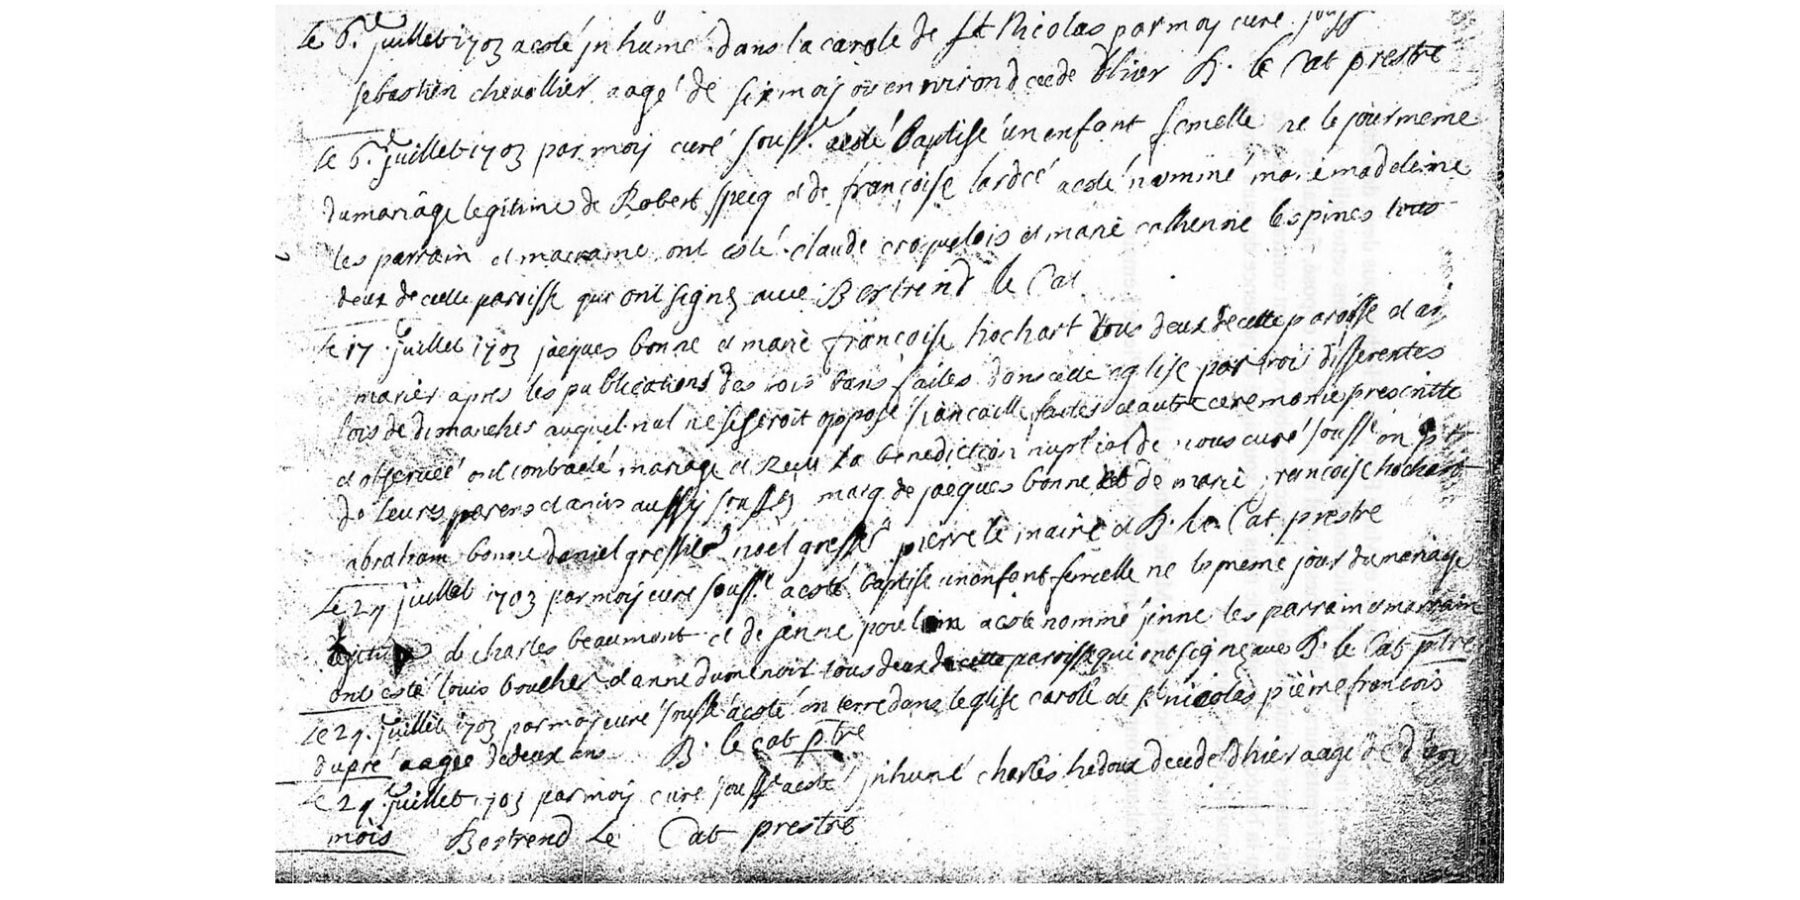 le 6.e juillet 1703 a esté inhumé dans la carole de st Nicolas par moy curé souss
sebastien chevallier aagé de six mois ou environ decede d'hier B. le Cat prestre
le 6.e juillet 1703 par moy curé souss.é a esté Baptisé un enfant femelle né le jour meme
du mariage legitime de Robert specq et de françoise lardcé a esté nommé marie madeleine
les parrain et maraine ont esté claude croquelois et marie catherine lespines tous
deux de cette paroisse qui ont signez avec Bertrend le Cat
le 17 juillet 1703 jacques bonne et marie françoise hochart tous deux de cette paroisse et
mariér apres les publications des trois bans faites dans cette eglise par trois differentes
fois de dimanches auquel nul ne se seroit opposé fiancaille faites et autre ceremonie prescritte
et observeé ont contracté mariage et Receu la benediction nuptial de nous curé soussé en
de leurs parens et amis aussy sousse marq de jacques bonne et de marie françoise hochart
abraham bonne daniel gressier noel gressier pierre le maire et B. le Cat prestre
Le 27 juillet 1703 par moy curé souss.é a esté baptisé un enfant femelle né le meme jour du mariage
de charles beaumont et de jenne a esté nommé jenne les parrain et marrain
ont esté louis boucher et anne dumenoir tous deux de cette paroisse qui ont signez avec B. le Cat ptre
Le 27. juillet 1703 par moy curé soussé a esté enterre dans leglise carole de st nicolas pierre francois
dupré aagee de deux ans B. le cat ptre
Le 29 juillet 1703 par moy curé soussé a esté inhumé charles hedoux decede d'hier aagé de d'un
mois Bertrend Le Cat prestre